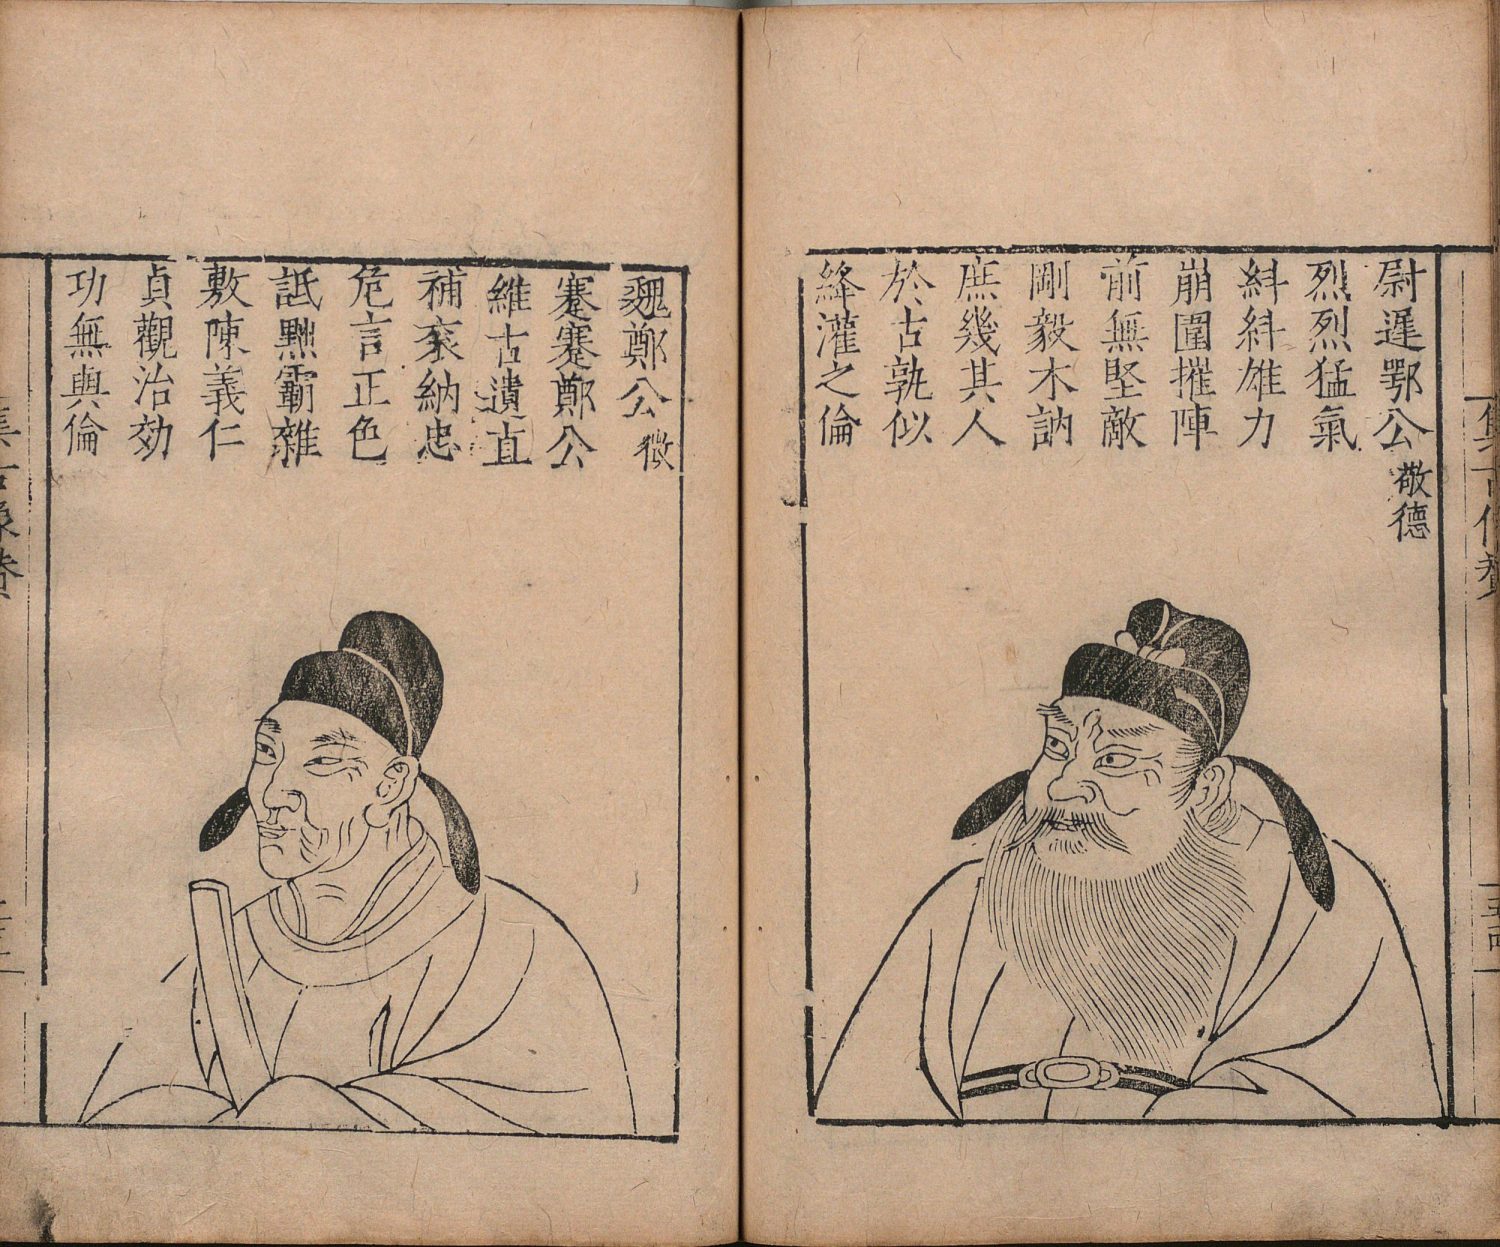 尉遲鄂公 敬德
烈烈猛氣
糾糾雄力
崩圍摧陣
前無堅敵
剛毅木訥
庶幾其人
於古孰似
絳灌之倫
魏鄭公 徵
蹇蹇鄭公
維古遺直
補袞納忠
危言正色
詆黜霸雜
敷陳義仁
貞觀治効
功無與倫
集古像贊